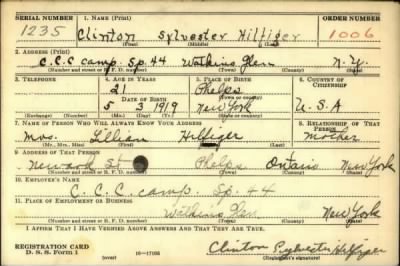 SERIAL NUMBER 1. NAME (Print) ORDER NUMBER
1235 Clinton Sylvester Hilfiger 1006
(First) (Middle) (Last)
2. ADDRESS (Print)
C.C.C camp. Sp. 44 Watkins Glen N.Y.
(Number and street or R. F. D. number) (Town) (County) (State)
3. TELEPHONE 4. AGE IN YEARS 5. PLACE OF BIRTH 6. COUNTRY OF CITIZENSHIP
21 Phelps
DATE OF BIRTH (Town or county)
5 3 1919 New York U.S.A
(Exchange) (Number) (Mo.) (Day) (Yr.) (State or country)
7. NAME OF PERSON WHO WILL ALWAYS KNOW YOUR ADDRESS 8. RELATIONSHIP OF THAT PERSON
Mrs. Lillian Hilfiger Mother
(Mr., Mrs., Miss) (First) (Middle) (Last)
9. ADDRESS OF THAT PERSON
Newark St Phelps Ontario New York
(Number and street or R. F. D. number) (Town) (County) (State)
10. EMPLOYER'S NAME
C.C.C. camp. Sp. 44
11. PLACE OF EMPLOYMENT OR BUSINESS
Watkins Glen New York
(Number and street or R. F. D. number) (Town) (County) (State)
I AFFIRM THAT I HAVE VERIFIED ABOVE ANSWERS AND THAT THEY ARE TRUE.
REGISTRATION CARD
D. S. S. Form 1 (over) 16-17105 Clinton Sylvester Hilfiger
(Registrant's signature)